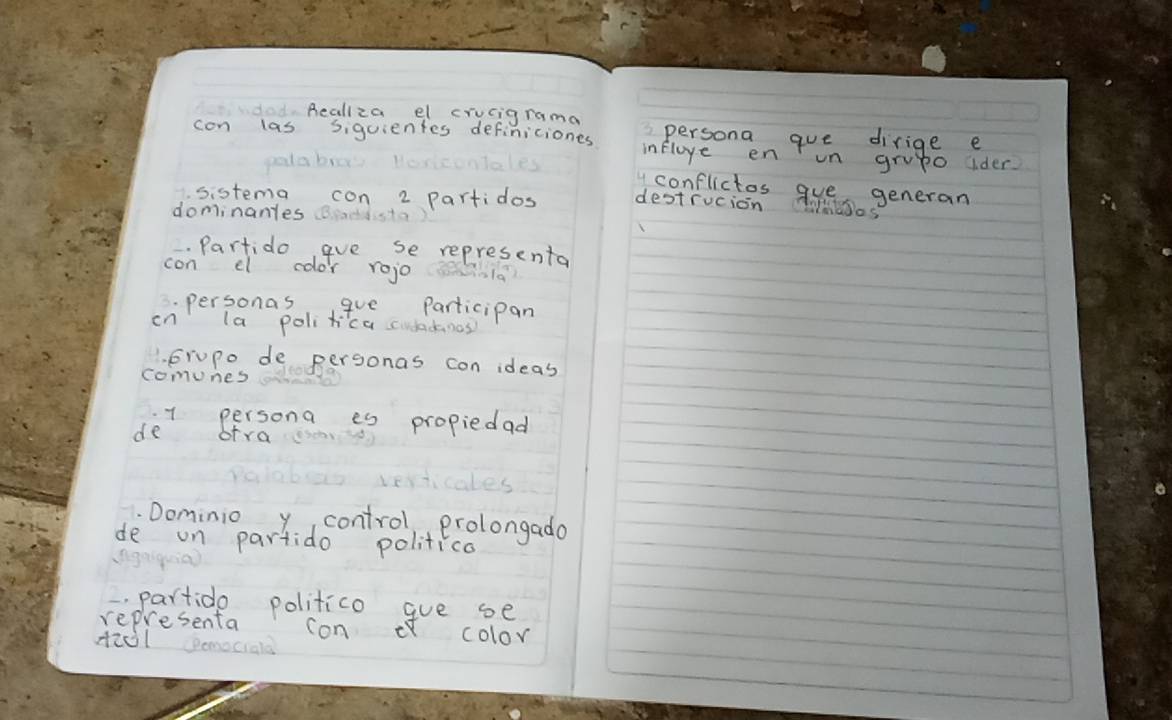 Actividad Realiza el crucigrama
con las siguientes definiciones
palabras Horicontales
1. sistema con 2 partidos
dominantes (Bipartidista)
2. Partido que se representa
con el color rojo
3. personas que Participan
en la politica (ciudadanos)
4. Grupo de personas con ideas
comunes
5. 1 persona es propiedad
de otra
Palabras verticales
1. Dominio y control prolongado
de un partido politico
2. partido politico que se
representa con el color
Azul
3 persona que dirige e
influye en un grupo (lider)
4 conflictos que generan
destrucion